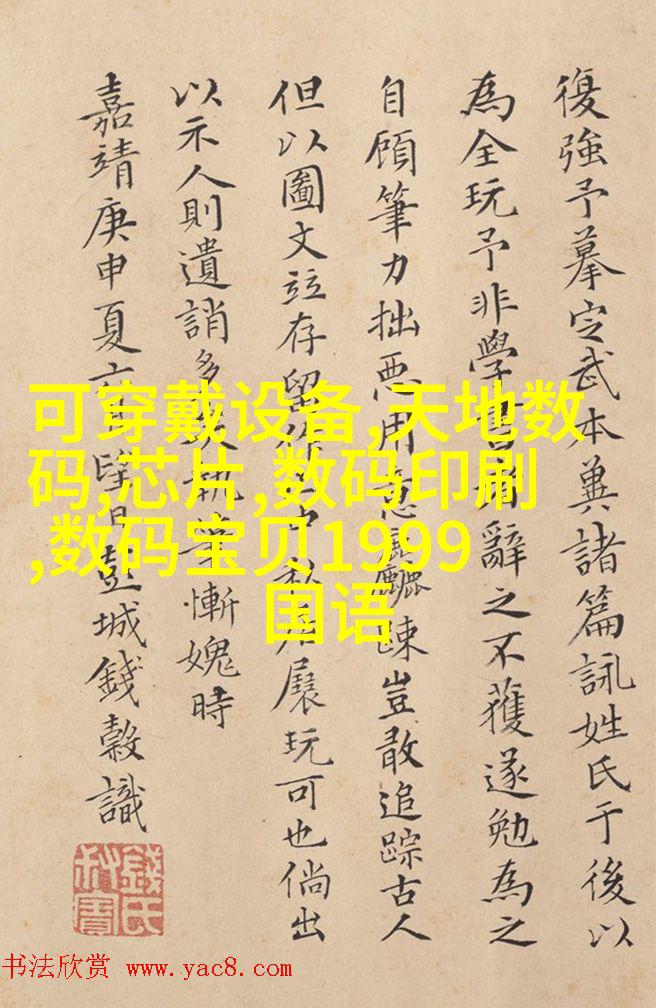 復強予摹定武本冀諸篇詠姓氏于後以
為全玩予非學書者辭之不獲遂勉為之
自顧筆力拙惡用意麤疎豈敢追踪古人
但以圖文竝存留 展玩可也倘出
以示人則遺誚多矣執筆慚媿時
嘉靖庚申夏六月望日彭城錢穀識
可穿戴设备,天地数
码,芯片,数码印刷
,数码宝贝1999
国语
錢氏
叔寶
书法欣赏 www.yac8.com